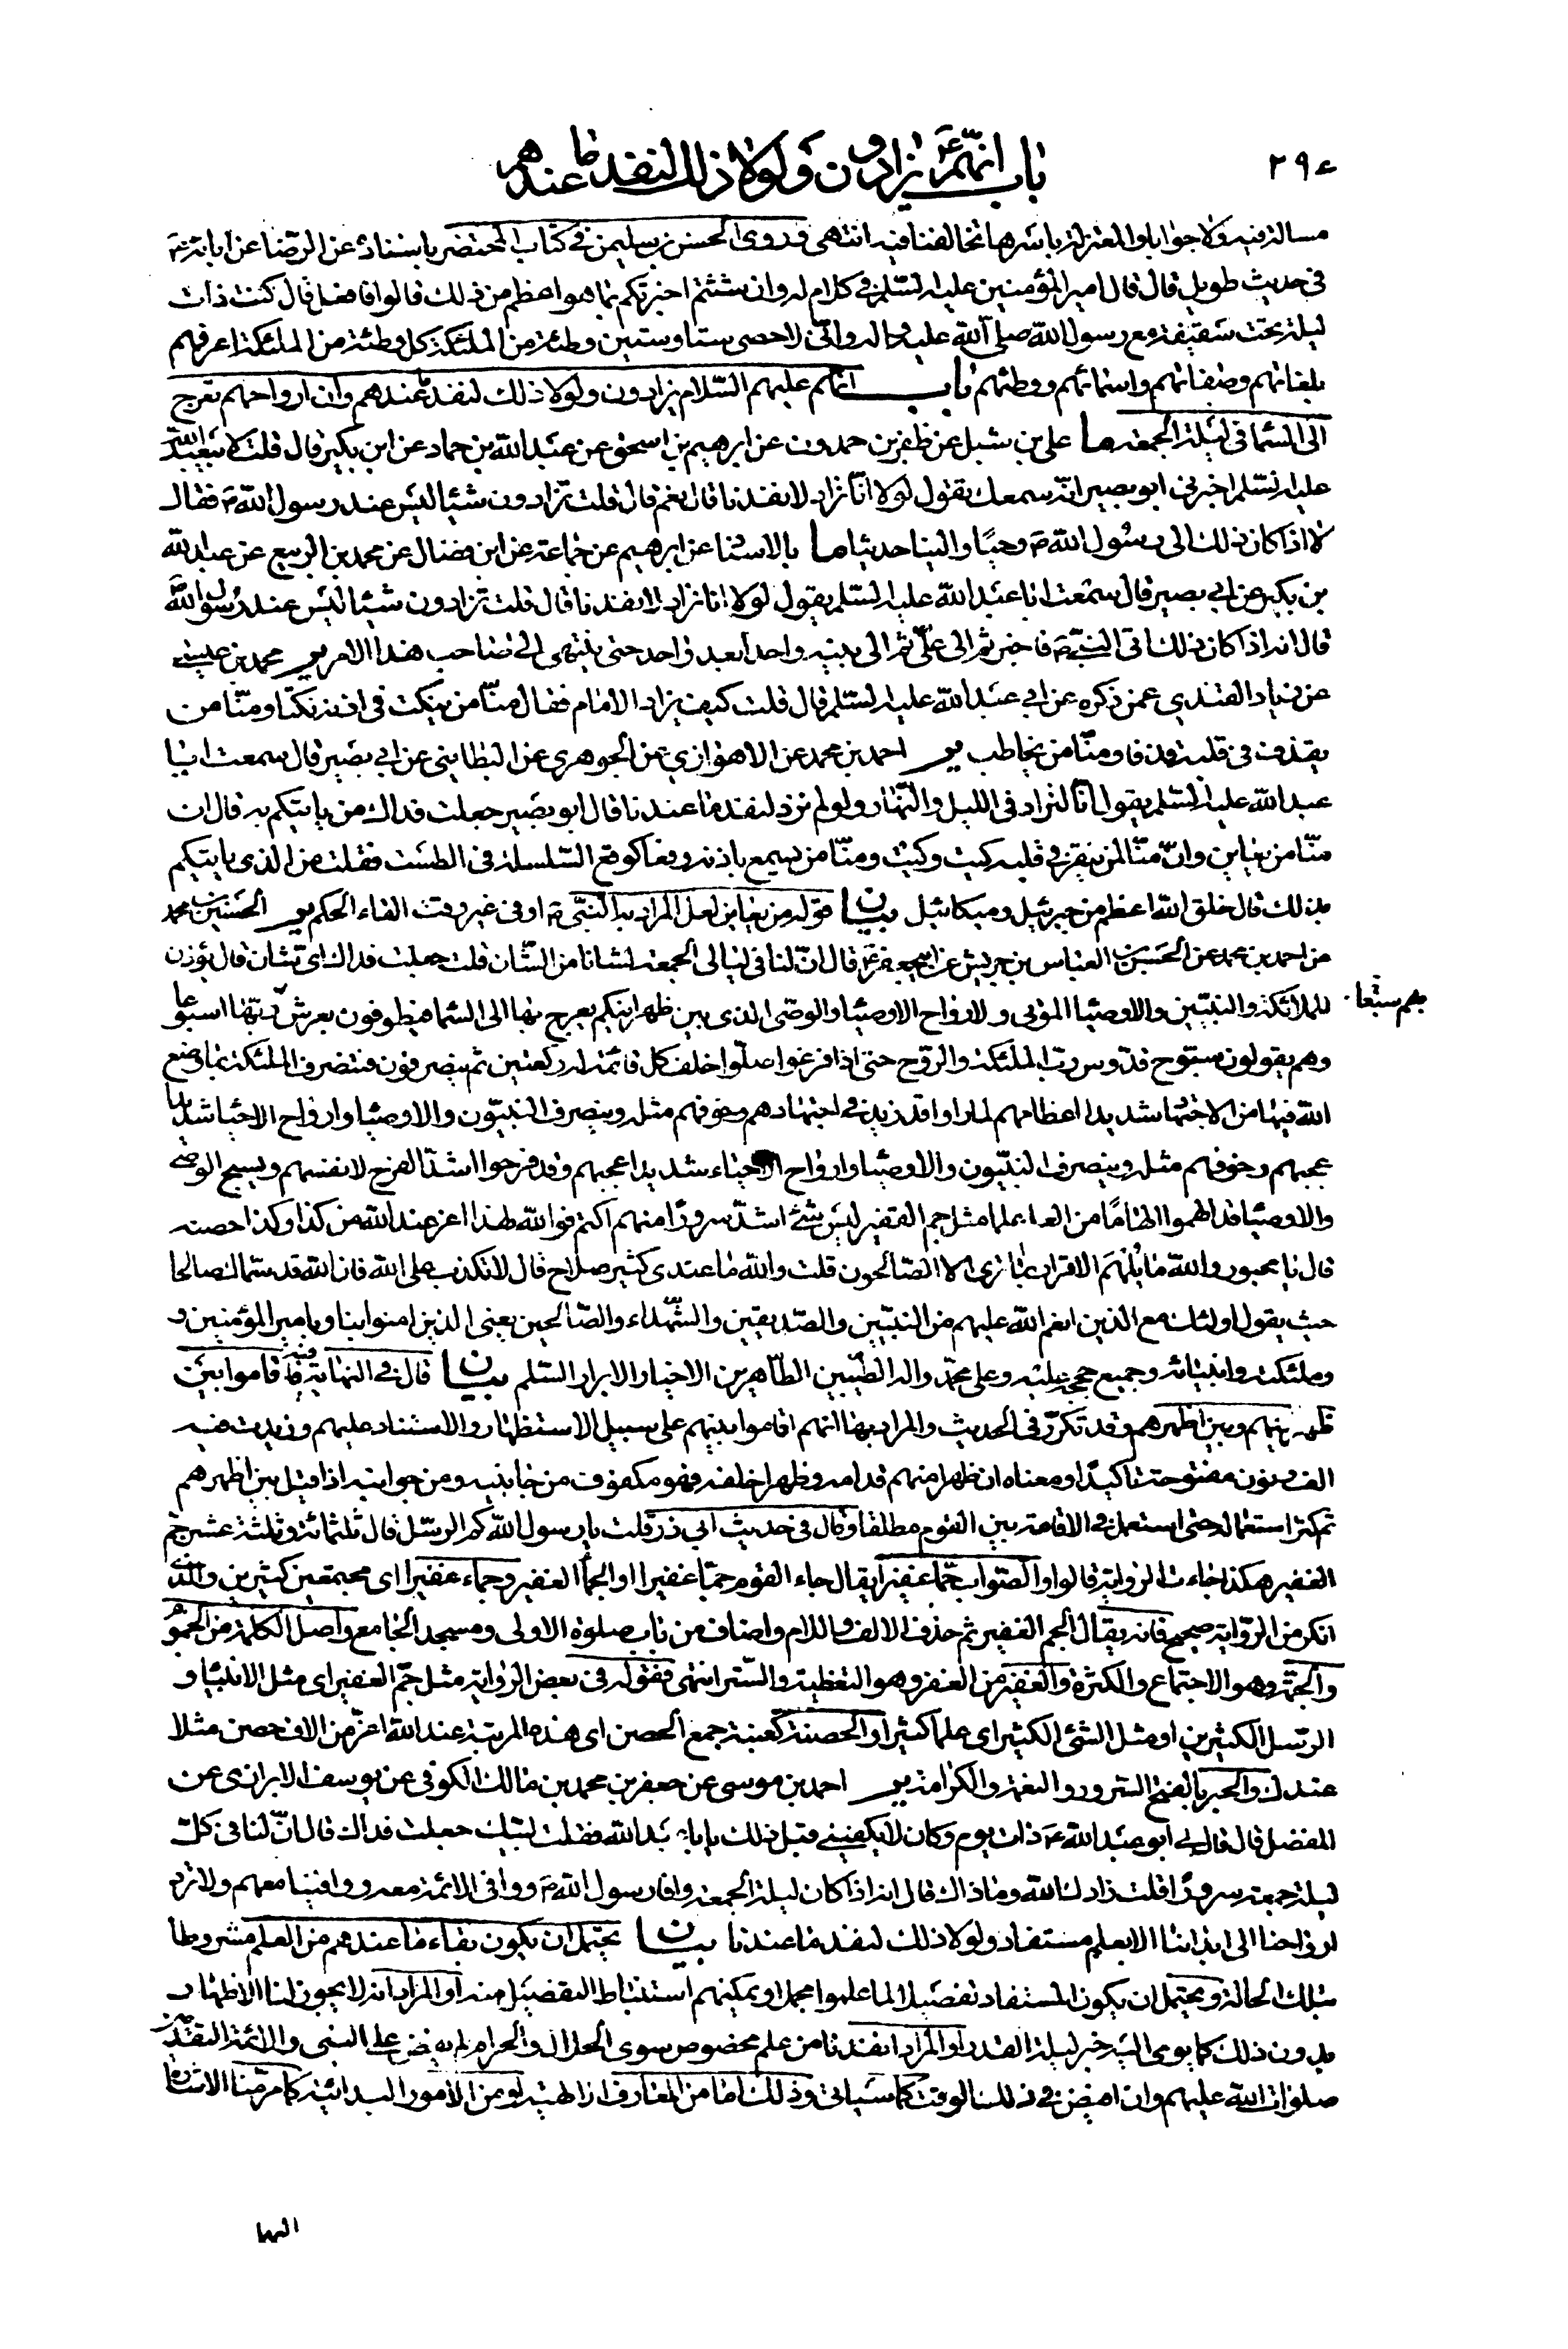 ٢٩٤
باب انهم ع يزادون ولولا ذلك لنفد ما عندهم
مسالة فيه ولا جوابا والمعتزلة باسرها تخالفنا فيه انتهى وروى الحسن بن سليمن في كتاب المحتضر باسناده عن الرضا عن ابائه ع
في حديث طويل قال قال امير المؤمنين عليه السلم في كلام له وان شئتم اخبرتكم بما هو اعظم من ذلك قالوا فافعل قال كنت ذات
ليلة تحت سقيفة مع رسول الله صلى الله عليه واله واني لاحصي ستا وستين وطئة من الملئكة كل وطئة من الملئكة اعرفهم
بلغاتهم وصفاتهم واسمائهم ووطئهم باب انهم عليهم السلام يزادون ولولا ذلك لنفد ما عندهم وان ارواحهم تعرج
الى السماء في ليلة الجمعة ما علي بن شبل عن ظفر بن حمدون عن ابرهيم بن اسحق عن عبد الله بن حماد عن ابن بكير قال قلت لابي عبد الله
عليه السلم اخبرني ابو بصير انه سمعك يقول لولا انا نزاد لانفدنا قال نعم قال قلت تزادون شيئا ليس عند رسول الله ص فقال
لا اذا كان ذلك الى رسول الله ص وحيا والينا حديثا ما بالاسناد عن ابرهيم عن جماعة عن ابن فضال عن محمد بن الربيع عن عبد الله
بن بكير عن ابي بصير قال سمعت ابا عبد الله عليه السلم يقول لولا انا نزاد لانفدنا قال قلت تزادون شيئا ليس عند رسول الله
قال انه اذا كان ذلك اتى النبي ص فاخبر ثم الى علي ثم الى بنيه واحدا بعد واحد حتى ينتهي الى صاحب هذا الامر ير محمد بن عيسى
عن زياد القندي عمن ذكره عن ابي عبد الله عليه السلم قال قلت كيف يزاد الامام فقال منا من ينكت في اذنه نكتا ومنا من
يقذف في قلبه قذفا ومنا من يخاطب ير احمد بن محمد عن الاهوازي عن الجوهري عن البطايني عن ابي بصير قال سمعت ابا
عبد الله عليه السلم يقول انا لنزاد في الليل والنهار ولو لم نزد لنفد ما عندنا قال ابو بصير جعلت فداك من ياتيكم به قال ان
منا من يعاين وان منا لمن ينقر في قلبه كيت وكيت ومنا من يسمع باذنه وقعا كوقع السلسلة في الطست فقلت من الذي ياتيكم
بذلك قال خلق الله اعظم من جبرئيل وميكائيل بيان قوله من يعاين لعل المراد به النبي ص او في غير وقت القاء الحكم ير الحسين بن محمد
عن احمد بن محمد عن الحسن بن العباس بن حريش عن ابي جعفر ع قال ان لنا في ليالي الجمعة لشانا من الشان قلت جعلت فداك اي شان قال يؤذن
للملائكة والنبيين والاوصياء الموتى ولارواح الاوصياء والوصي الذي بين ظهرانيكم يعرج بها الى السماء فيطوفون بعرش ربها اسبوعا
وهم يقولون سبوح قدوس رب الملئكة والروح حتى اذا فرغوا صلوا خلف كل قائمة له ركعتين ثم ينصرفون فتنصرف الملئكة بما وضع
الله فيها من الاجتهاد شديدا اعظامهم لما راوا وقد زيد في اجتهادهم وخوفهم مثله وينصرف النبيون والاوصياء وارواح الاحياء شديدا
عجبهم وخوفهم مثله وينصرف النبيون والاوصياء وارواح الاحياء شديدا عجبهم وقد فرحوا اشد الفرح لانفسهم ويسبح الوصي
والاوصياء قد الهموا الهاما من العلم علما مثل جم الغفير ليس شئ اشد سرورا منهم اكتم فوالله لهذا اعز عند الله من كذا وكذا حصنة
قال يا محبور والله ما يلهم الاقرار بما ترى الا الصالحون قلت والله ما عندي كثير صلاح قال لا تكذب على الله فان الله قد سماك صالحا
حيث يقول اولئك مع الذين انعم الله عليهم من النبيين والصديقين والشهداء والصالحين يعني الذين امنوا بنا وبامير المؤمنين و
وملئكته وانبيائه وجميع حججه عليه وعلى محمد واله الطيبين الطاهرين الاخيار الابرار السلم بيان قال في النهاية فيه فاقاموا بين
ظهرانيهم وبين اظهرهم وقد تكرر في الحديث والمراد بها انهم اقاموا بينهم على سبيل الاستظهار والاستناد عليهم وزيدت فيه
الف ونون مفتوحة تاكيدا ومعناه ان ظهرا منهم قدامه وظهرا خلفه فهو مكفوف من جانبيه ومن جوانبه اذا قيل بين اظهرهم
ثم كثر استعماله حتى استعمل في الاقامة بين القوم مطلقا وقال في حديث ابي ذر قلت يا رسول الله كم الرسل قال ثلثمائة وثلثة عشر جم
الغفير هكذا جاءت الرواية قالوا والصواب جما غفيرا يقال جاء القوم جما غفيرا والجماء الغفير وجماء غفيرا اى مجتمعين كثيرين والذي
انكر من الرواية صحيح فانه يقال الجم الغفير ثم حذف الالف واللام واضاف من باب صلوة الاولى ومسجد الجامع واصل الكلمة من الجموم
والجمة وهو الاجتماع والكثرة والغفير من الغفر وهو التغطية والستر انتهى فقوله في بعض الرواية مثل جم الغفير اي مثل الانبياء و
الرسل الكثيرين او مثل الشئ الكثير اي علما كثيرا والحصنة كعنبة جمع الحصن اي هذه المرتبة عند الله اعز من الاف حصن مثلا
عندك والحبر بالفتح السرور والنعمة والكرامة ير احمد بن موسى عن جعفر بن محمد بن مالك الكوفي عن يوسف الابزاري عن
المفضل قال قال لي ابو عبد الله ع ذات يوم وكان لا يكنيني قبل ذلك يا با عبد الله فقلت لبيك جعلت فداك قال ان لنا في كل
ليلة جمعة سرورا قلت زادك الله وما ذاك قال انه اذا كان ليلة الجمعة وافى رسول الله ص ووافى الائمة معه ووافينا معهم ولا ترد
ارواحنا الى ابداننا الا بعلم مستفاد ولولا ذلك لنفد ما عندنا بيان يحتمل ان يكون بقاء ما عندهم من العلم مشروطا
بتلك الحالة ويحتمل ان يكون المستفاد تفصيلا لما علموا مجملا ويمكنهم استنباط التفصيل منه او المراد انه لا يجوز لنا الاظهار
بدون ذلك كما يومي اليه خبر ليلة القدر او المراد انفدنا من علم مخصوص سوى الحلال والحرام لم يفض على النبي والائمة المتقدمين
صلوات الله عليهم وان افيض في ذلك الوقت كما سياتي وذلك اما من المعارف الالهية او من الامور البدائية كما مر منا الاشارة
اليها